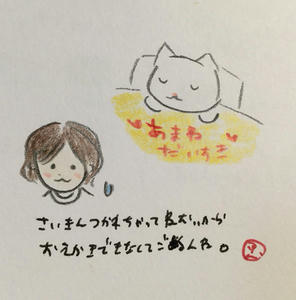 あまね
だいすき
さいきんつかれちゃってねむいから
おえかきできなくてごめんね。